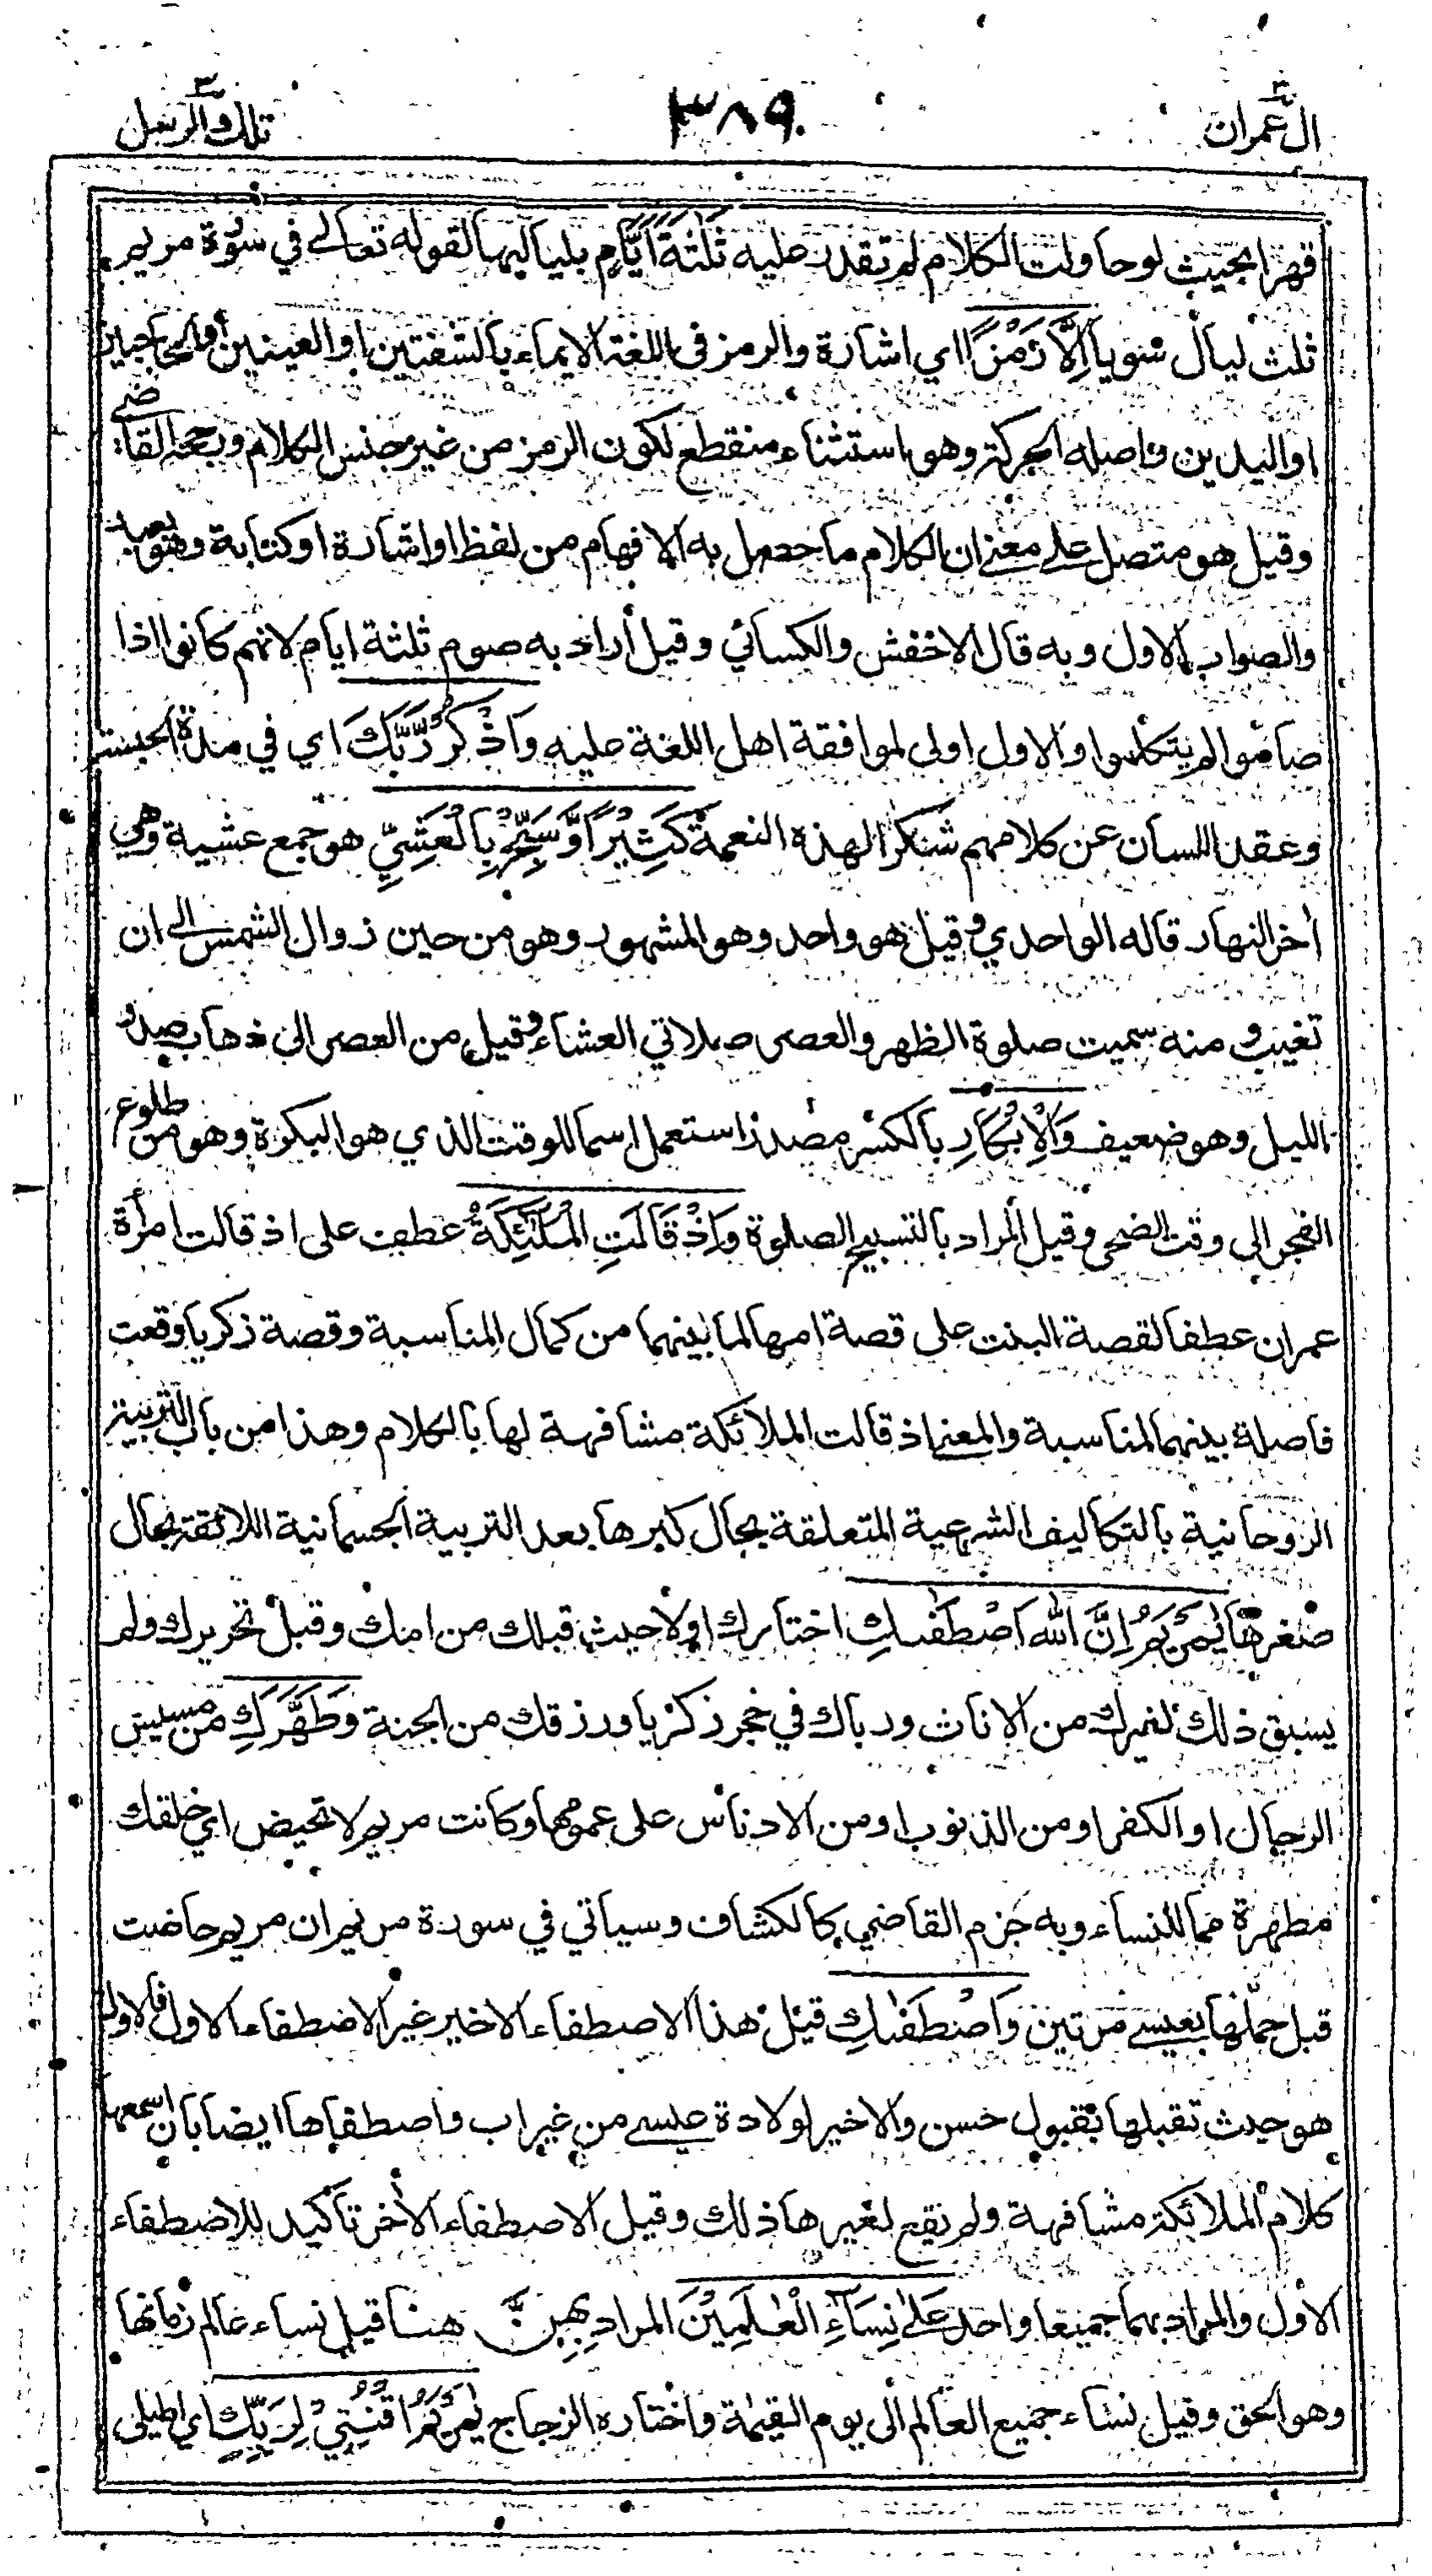 اٰل عمران ٣
٣٨٩
تلك الرسل ٣
قهرا بحيث لو حاولت الكلام لم تقدر عليه ثَلٰثَةَ اَيَّامٍ بلياليها لقوله تعالى في سورة مريم
ثلث ليال سويا اِلَّا رَمْزًا اي اشارة والرمز في اللغة الايماء بالشفتين او العينين او الحاجبين
او اليدين واصله الحركة وهو استثناء منقطع لكون الرمز من غير جنس الكلام وبحثه القاضي
وقيل هو متصل على معنى ان الكلام ما حصل به الافهام من لفظ او اشارة او كتابة وهو بعيد
والصواب الاول وبه قال الاخفش والكسائي وقيل أراد به صوم ثلثة ايام لانهم كانوا اذا
صاموا لم يتكلموا والاول اولى لموافقة اهل اللغة عليه وَاذْكُرْ رَّبَّكَ اي في مدة الحبسة
وعقد اللسان عن كلامهم شكرا لهذه النعمة كَثِيْرًا وَّسَبِّحْ بِالْعَشِيِّ هو جمع عشية وهي
اٰخر النهار قاله الواحدي وقيل هو واحد وهو المشهور وهو من حين زوال الشمس الى ان
تغيب ومنه سميت صلوة الظهر والعصر صلاتي العشاء وقيل من العصر الى ذهاب صدر
الليل وهو ضعيف وَالْاِبْكَارِ بالكسر مصدر استعمل اسما للوقت الذي هو البكرة وهو من طلوع
الفجر الى وقت الضحى وقيل المراد بالتسبيح الصلوة وَاِذْ قَالَتِ الْمَلٰٓئِكَةُ عطف على اذ قالت امرأة
عمران عطفا لقصة البنت على قصة امها لما بينهما من كمال المناسبة وقصة زكريا وقعت
فاصلة بينهما لمناسبة والمعنى اذ قالت الملائكة مشافهة لها بالكلام وهذا من باب التربية
الروحانية بالتكاليف الشرعية المتعلقة بحال كبرها بعد التربية الجسمانية اللائقة بحال
صغرها يٰمَرْيَمُ اِنَّ اللّٰهَ اصْطَفٰىكِ اختارك اولا حيث قبلك من امك وقبل تحريرك ولم
يسبق ذلك لغيرك من الاناث ورباك في حجر زكريا ورزقك من الجنة وَطَهَّرَكِ من مسيس
الرجال او الكفر او من الذنوب او من الادناس على عمومها وكانت مريم لا تحيض اي خلقك
مطهرة مما للنساء وبه جزم القاضي كالكشاف وسياتي في سورة مريم ان مريم حاضت
قبل حملها بعيسى مرتين وَاصْطَفٰىكِ قيل هذا الاصطفاء الاخير غير الاصطفاء الاول فالاول
هو حيث تقبلها بقبول حسن والاخير لولادة عيسى من غير اب واصطفاها ايضا بان اسمعها
كلام الملائكة مشافهة ولم يقع لغيرها ذلك وقيل الاصطفاء الأخر تاكيد للاصطفاء
الاول والمراد بهما جميعا واحد عَلٰى نِسَآءِ الْعٰلَمِيْنَ المراد بِهِنَّ هنا قيل نساء عالم زمانها
وهو الحق وقيل نساء جميع العالم الى يوم القيمة واختاره الزجاج يٰمَرْيَمُ اقْنُتِيْ لِرَبِّكِ اي اطيلي